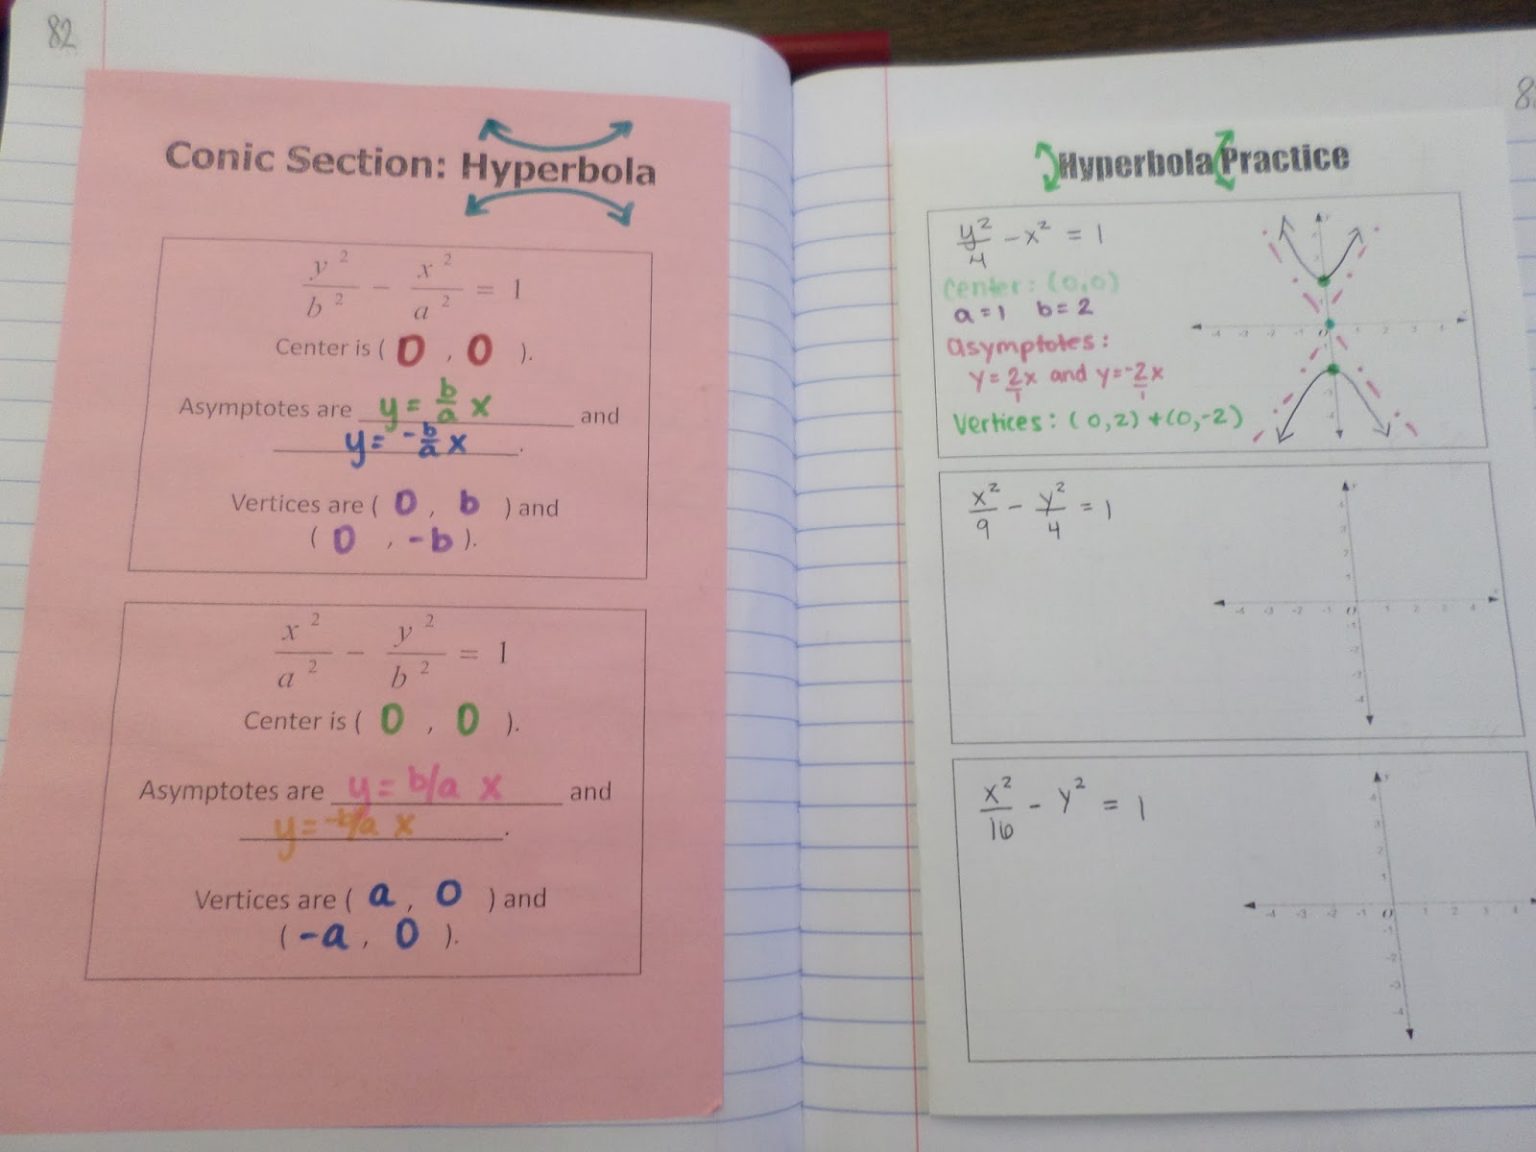 82
Conic Section: Hyperbola
y²/b² - x²/a² = 1
Center is ( 0 , 0 ).
Asymptotes are y = b/a x and
y = -b/a x .
Vertices are ( 0 , b ) and
( 0 , -b ).
x²/a² - y²/b² = 1
Center is ( 0 , 0 ).
Asymptotes are y = b/a x and
y = -b/a x .
Vertices are ( a , 0 ) and
( -a , 0 ).
Hyperbola Practice
y²/4 - x² = 1
Center: (0,0)
a=1 b=2
asymptotes:
y=2/1x and y=-2/1x
Vertices: (0,2) + (0,-2)
x²/9 - y²/4 = 1
x²/16 - y² = 1